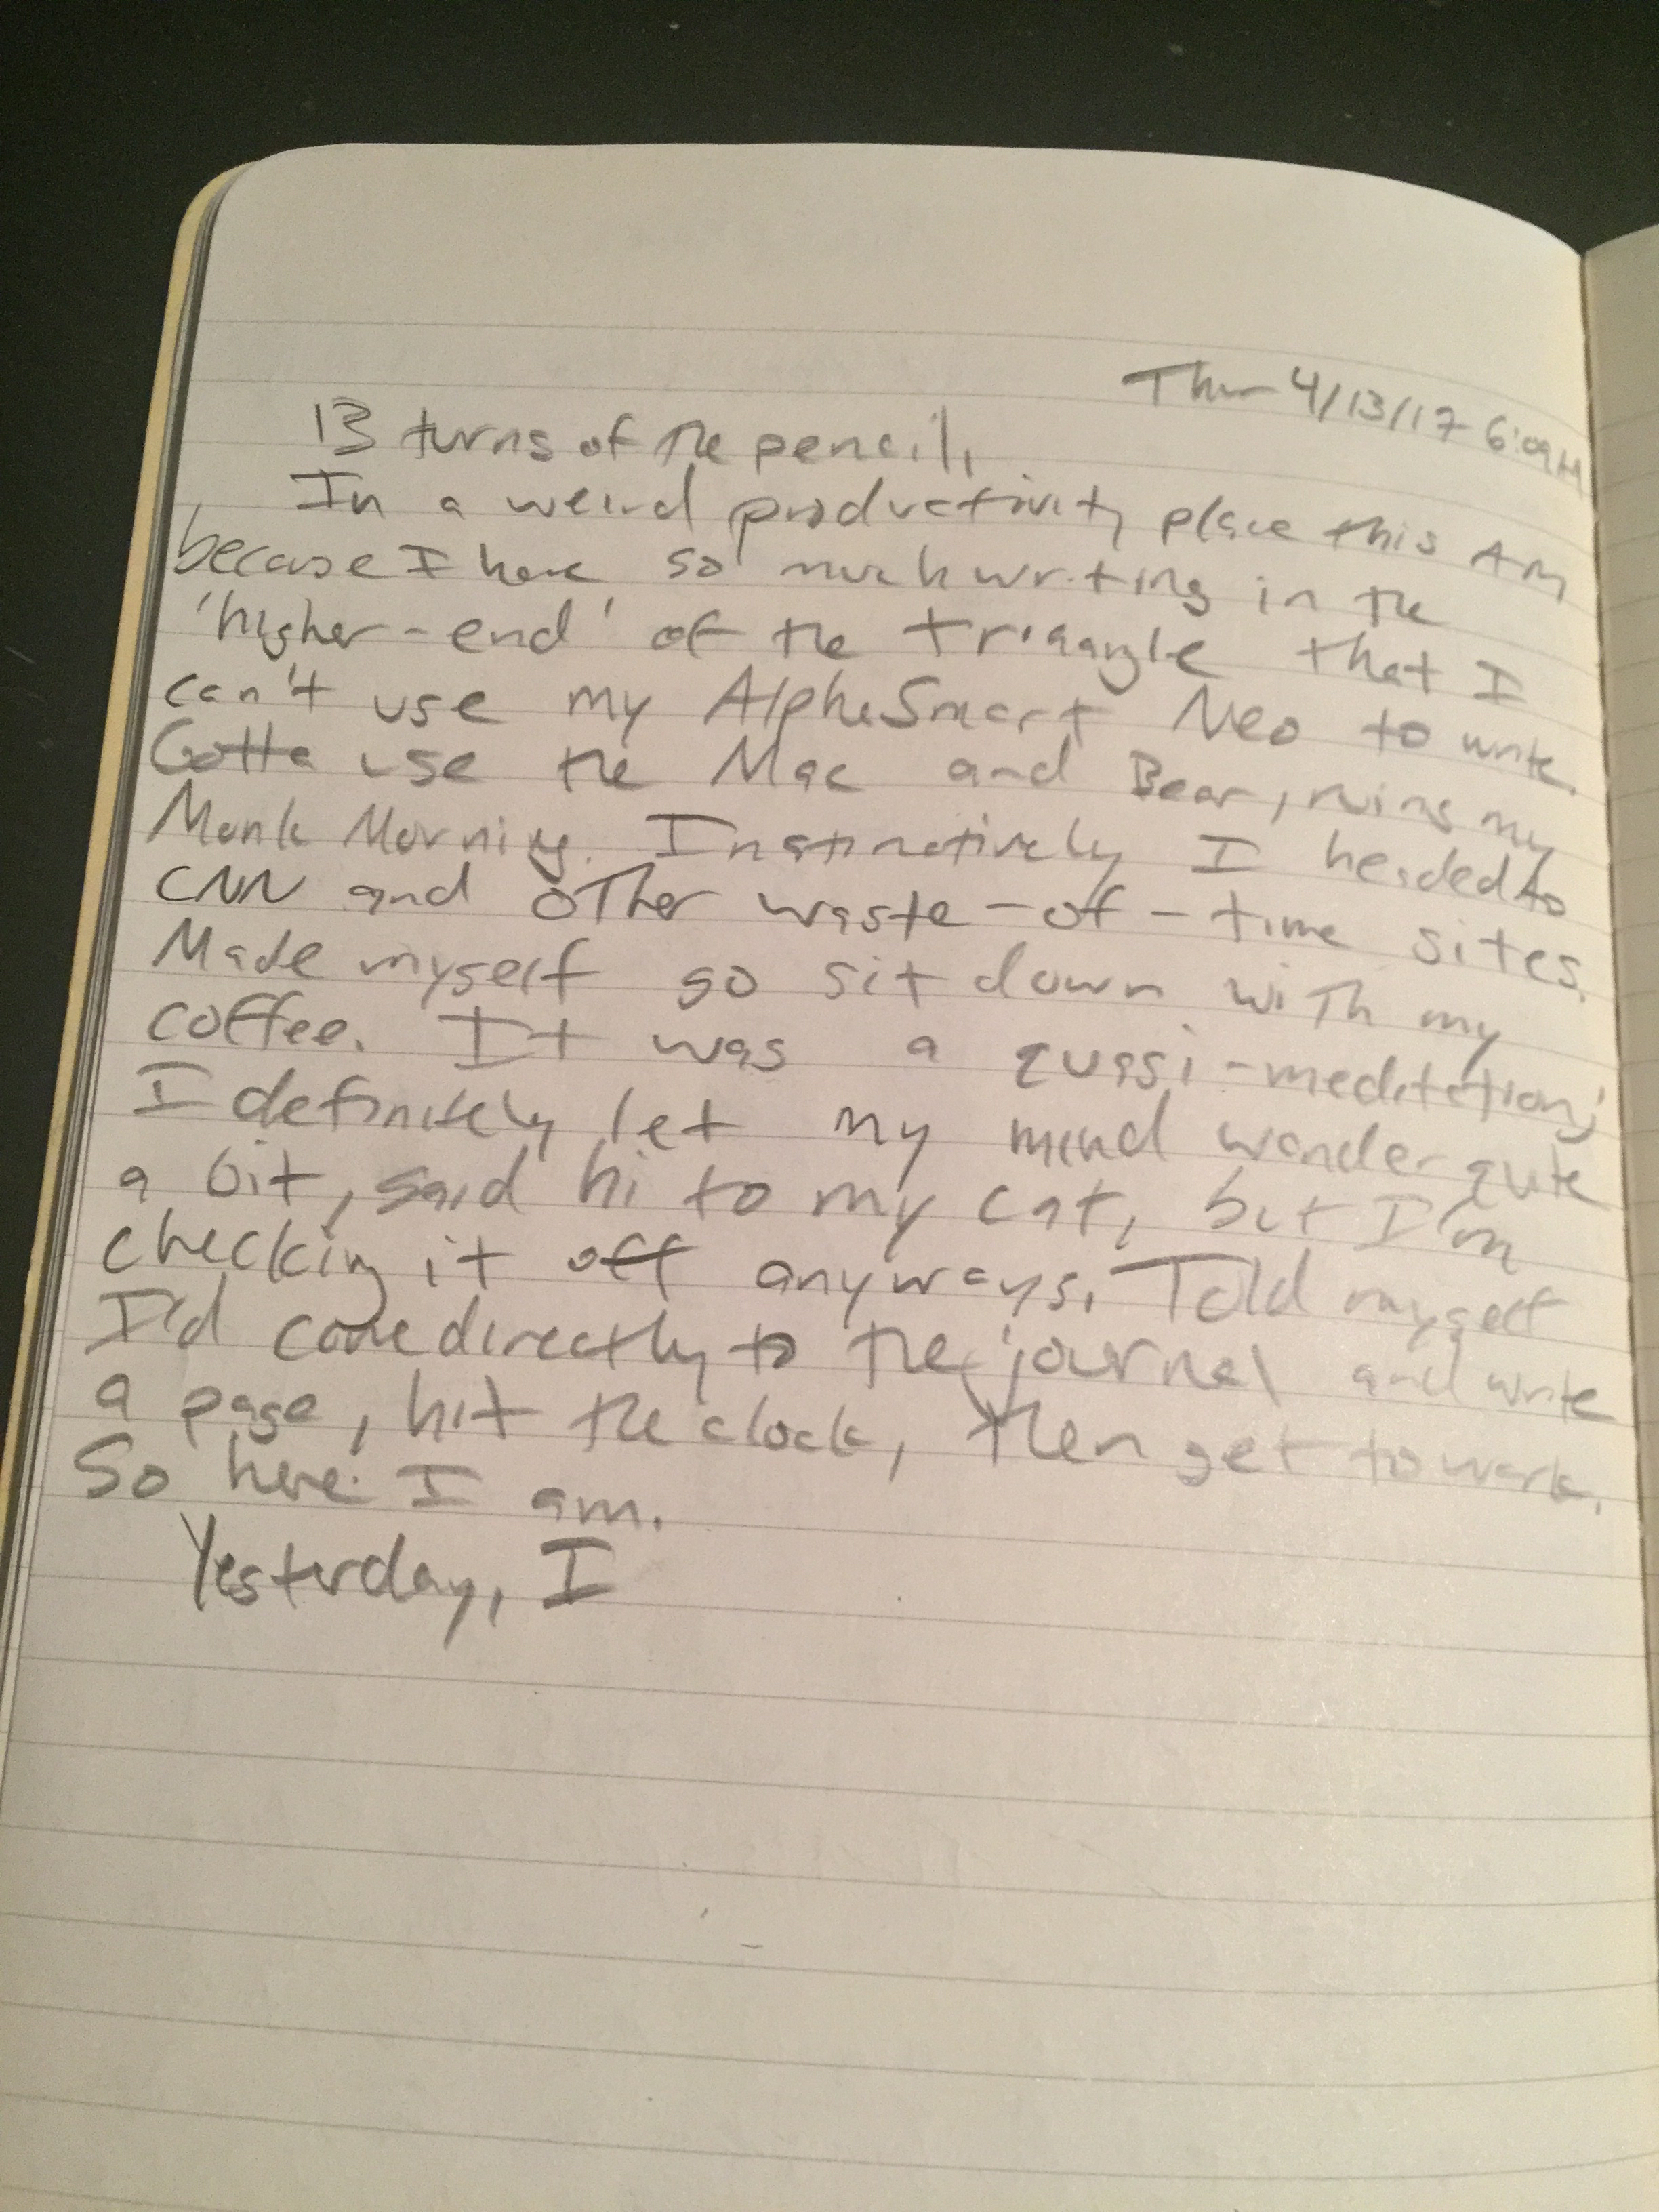 Thur 4/13/17 6:09AM
13 turns of the pencil.
In a weird productivity place this AM
because I have so much writing in the
'higher-end' of the triangle that I
can't use my AlphaSmart Neo to write.
Gotta use the Mac and Bear, ruins my
Monk Morning. Instinctively I headed to
CNN and other waste-of-time sites.
Made myself go sit down with my
coffee. It was a quasi-meditation;
I definitely let my mind wander quite
a bit, said hi to my cat, but I'm
checking it off anyways. Told myself
I'd come directly to the journal and write
a page, hit the clock, then get to work.
So here I am.
Yesterday, I